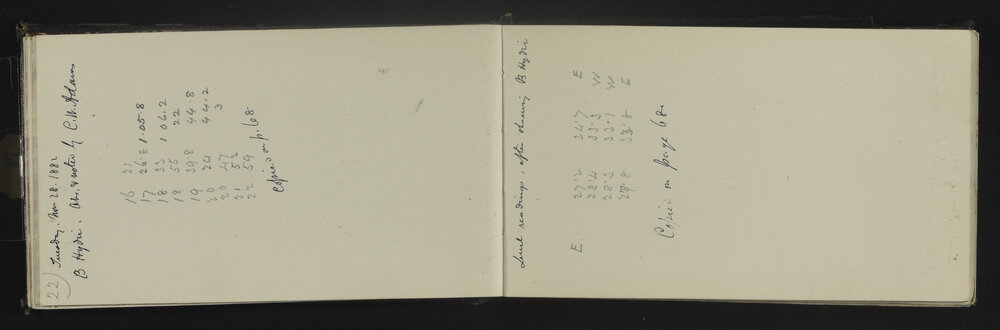 22)
Tuesday. Nov. 28. 1882
B Hydri. Obs. & noted by C. W. Adams
16 21
17 26.8 1.05.8
18 33 1 06.2
18 55 22
19 39.8 44.8
20 24 44.2
20 47 3
21 52
22 59
Copied on p. 68
Level readings, after observing B Hydri
E 27.2 34.7 E
28.4 33.3 W
28.3 33.1 W
29.8 33.8 E
Copied on page 68